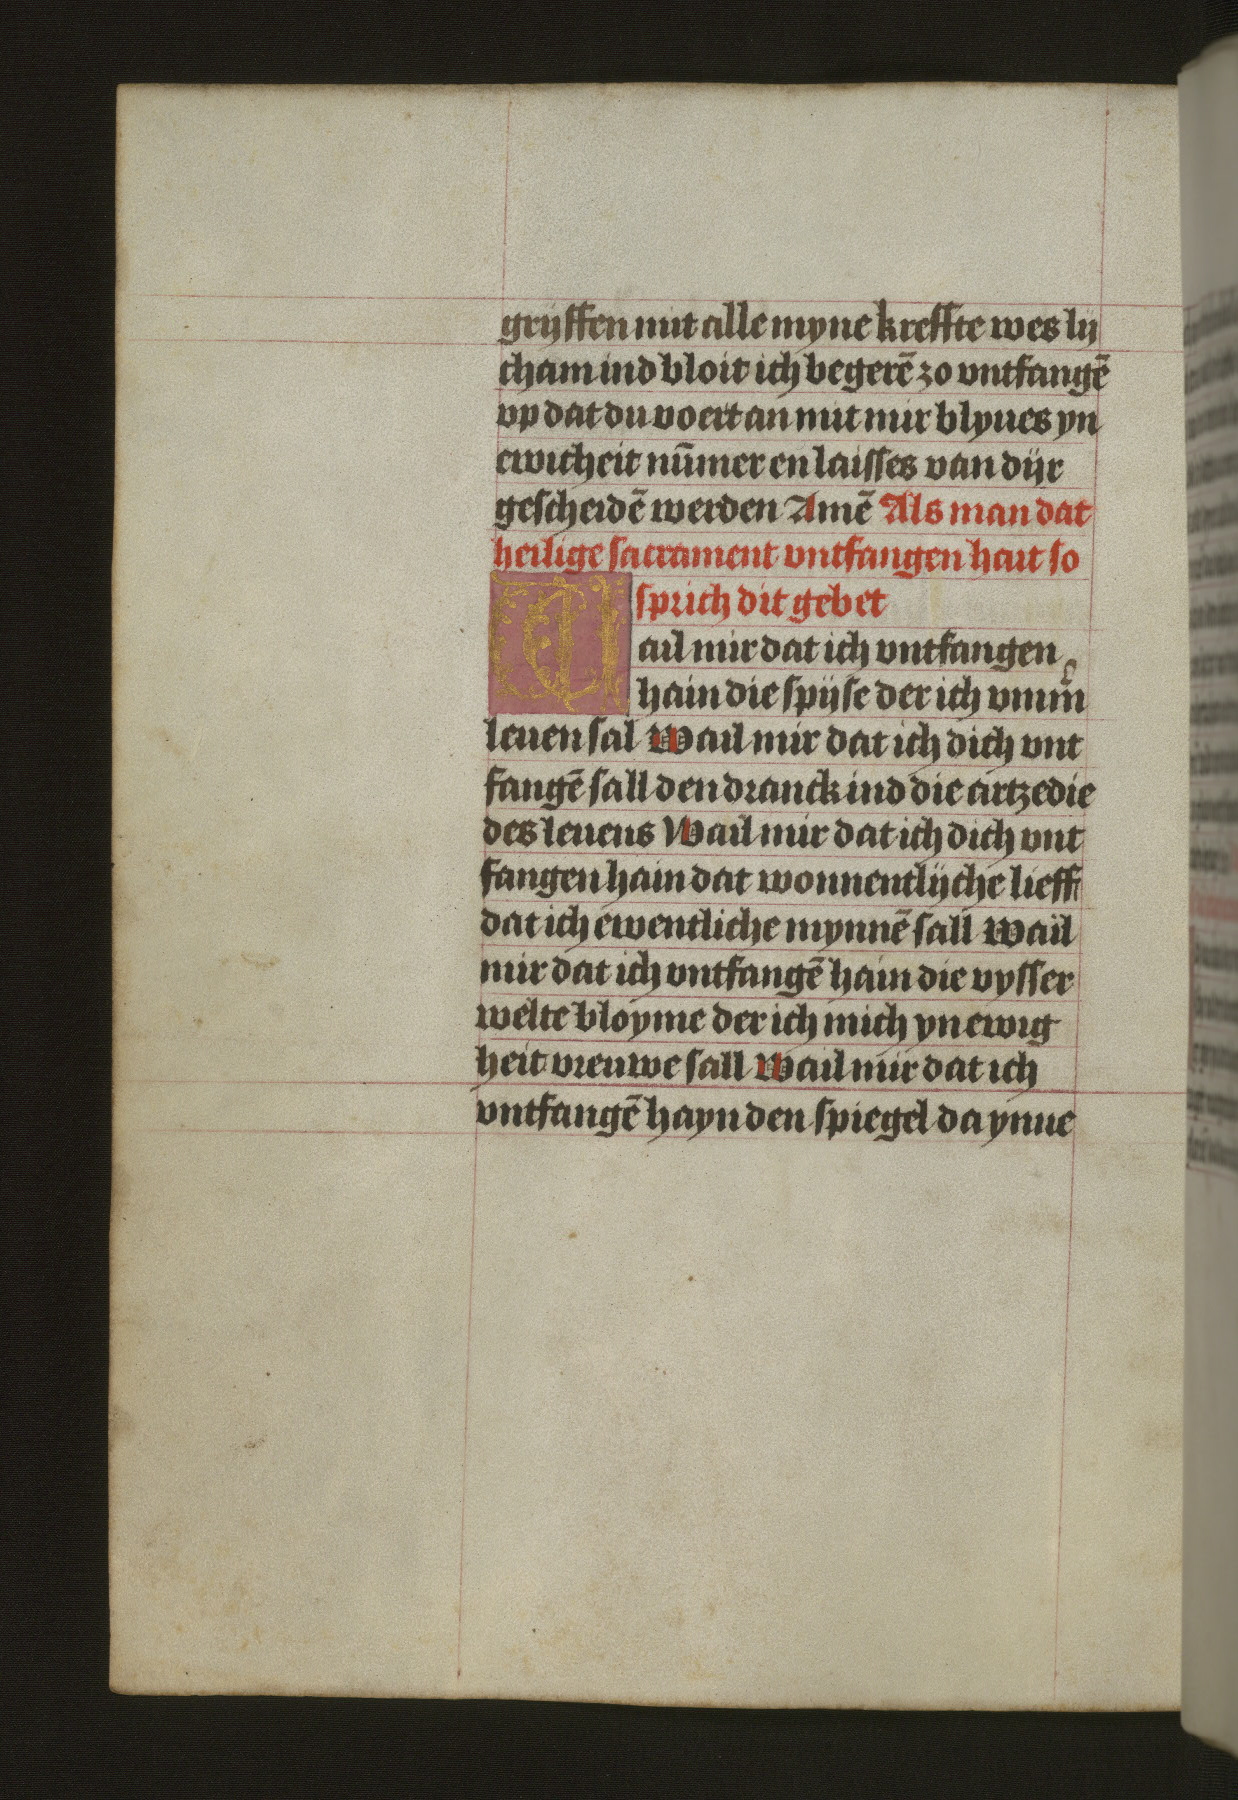 grijffen mit alle myne kreffte wes lij
cham ind bloit ich begerē zo vntfangē
vp dat du voert an mit mir blyues yn
ewicheit nūmer en laisses van dijr
gescheidē werden Amē Als man dat
heilige sacrament vntfangen hait so
sprich dit gebet
Wail mir dat ich vntfangen
hain die spijse der ich vmm̄
leuen sal Wail mir dat ich dich vnt
fangē sall den dranck ind die artzedie
des leuens Wail mir dat ich dich vnt
fangen hain dat wonnentlijche lieff
dat ich ewentliche mynnē sall Wail
mir dat ich vntfangē hain die vysser
welte bloyme der ich mich yn ewig
heit vreuwe sall Wail mir dat ich
vntfangē hayn den spiegel da ynne